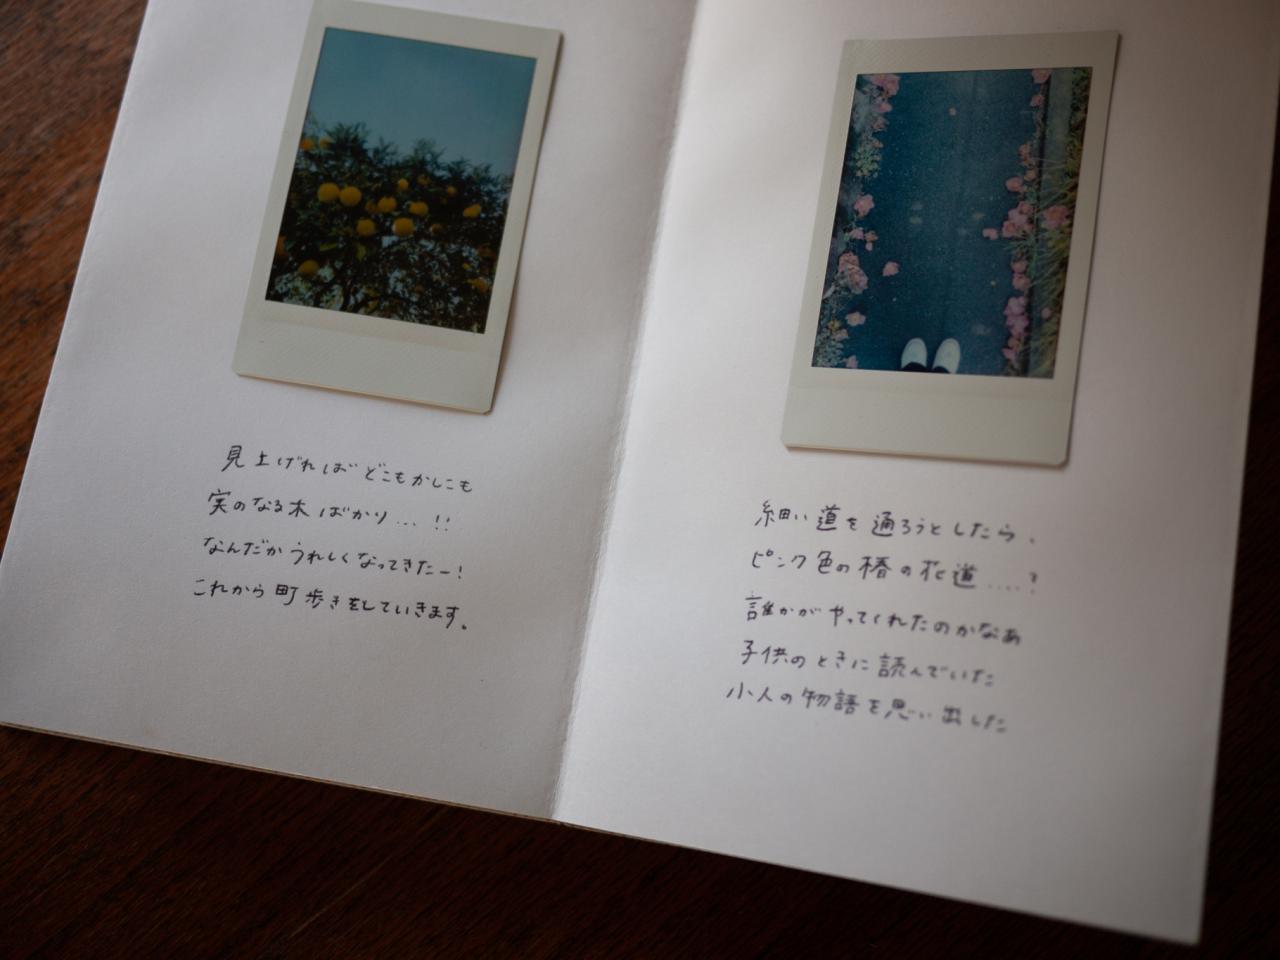 見上げればどこもかしこも
実のなる木ばかり...!!
なんだかうれしくなってきたー!
これから町歩きをしていきます。
細い道を通ろうとしたら、
ピンク色の椿の花道....?
誰かがやってくれたのかなあ
子供のときに読んでいた
小人の物語を思い出した